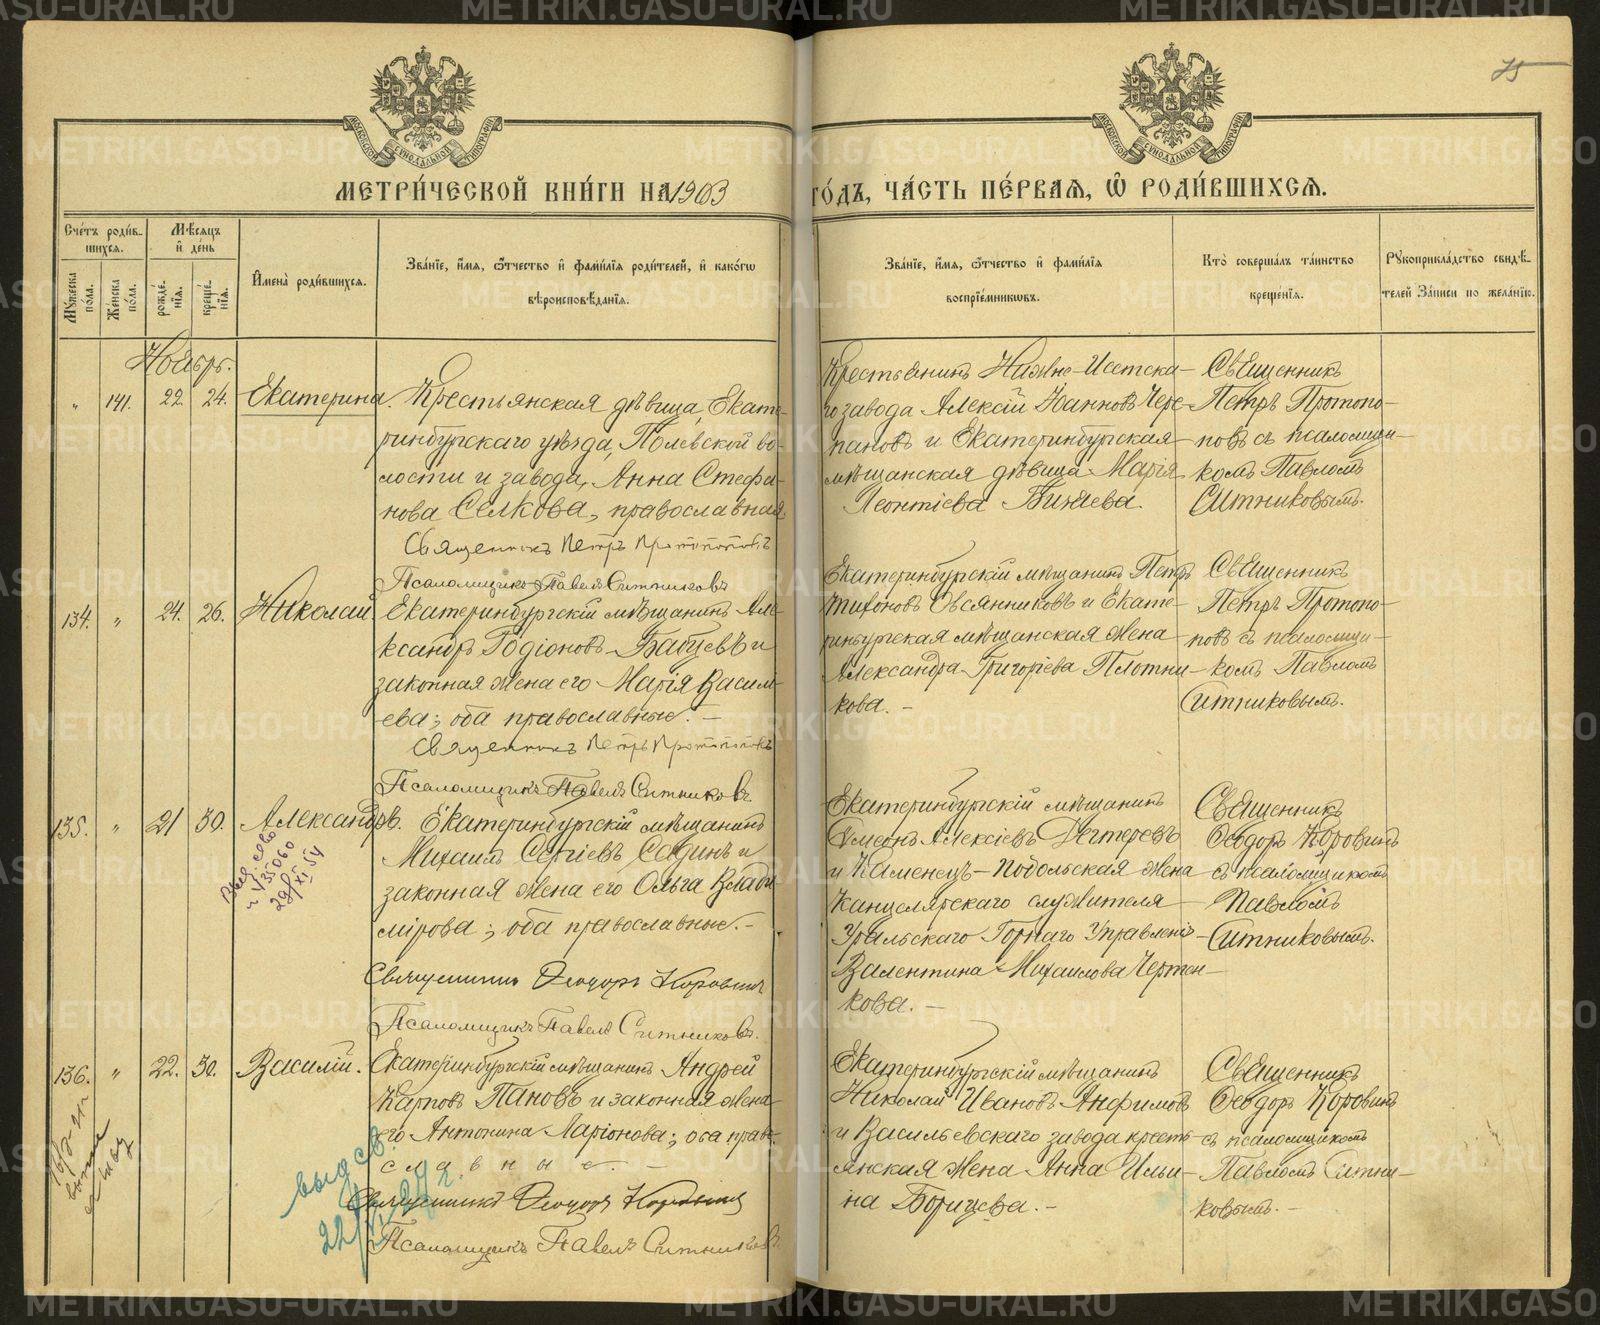 75
МЕТРИ́ЧЕСКОЙ КНИ́ГИ НА 1903 ГО́ДЪ, ЧА́СТЬ ПЕ́РВАѦ, Ѡ РОДИ́ВШИХСѦ.
Сче́тъ роди́в-
шихся.
Мѣсяцъ
и де́нь
Мꙋжеска
по́ла.
Же́нска
по́ла.
рожде́-
нїя.
креще́-
нїя.
Имена̀ роди́вшихся.
Зва́нїе, и́мя, ѻ҆́тчество и҆ фами́лїя роди́телей, и҆ како́гѡ
вѣроисповѣ́данїя.
Зва́нїе, и́мя, ѻ҆́тчество и҆ фами́лїя
воспрїе́мникѡвъ.
Кто̀ соверша́лъ та́инство
креще́нїя.
Рꙋкоприкла́дство свидѣ́-
телей за́писи по жела́нїю.
Ноябрь.
„ 141. 22. 24. Екатерина.
Крестьянская дѣвица, Екате-
ринбургскаго уѣзда, Полевской во-
лости и завода, Анна Стефа-
нова Селкова, православная
Священникъ Петръ Протопоповъ
Псаломщикъ Павелъ Ситниковъ
Крестьянинъ Нижне-Исетска-
го завода Алексій Іоанновъ Чере-
пановъ и Екатеринбургская
мѣщанская дѣвица Марія
Леонтіева
Священникъ
Петръ Протопо-
повъ съ псаломщи-
комъ Павломъ
Ситниковымъ.
134. „ 24. 26. Николай.
Екатеринбургскій мѣщанинъ Але-
ксандръ Родіоновъ Бабуевъ и
законная жена его Марія Василь-
ева; оба православные. –
Священникъ Петръ Протопоповъ
Псаломщикъ Павелъ Ситниковъ
Екатеринбургскій мѣщанинъ Петръ
Тихоновъ Овсянниковъ и Екате-
ринбургская мѣщанская жена
Александра Григоріева Плотни-
кова. –
Священникъ
Петръ Протопо-
повъ съ псаломщи-
комъ Павломъ
Ситниковымъ.
135. „ 21 30. Александръ.
Выд. св-во
Екатеринбургскій мѣщанинъ
Михаилъ Сергіевъ Садинъ и
законная жена его Ольга Влади-
мірова; оба православные. –
Священникъ Ѳеодоръ Коровинъ
Псаломщикъ Павелъ Ситниковъ.
Екатеринбургскій мѣщанинъ
Сѵмеонъ Алексіевъ Дегтеревъ
и Каменецъ-Подольская жена
канцелярскаго служителя
Уральскаго Горнаго Управленія
Валентина Михаилова Чертен-
кова. –
Священникъ
Ѳеодоръ Коровинъ
съ псаломщикомъ
Павломъ
Ситниковымъ.
136. „ 22. 30. Василій.
Екатеринбургскій мѣщанинъ Андрей
Карповъ Пановъ и законная жена
его Антонина Ларіонова; оба право-
славные. –
Священникъ Ѳеодоръ Коровинъ
Псаломщикъ Павелъ Ситниковъ.
выд св.
Екатеринбургскій мѣщанинъ
Николай Ивановъ Анфимовъ
и Васильевскаго завода кресть-
янская жена Анна Ильи-
на Борщева. –
Священникъ
Ѳеодоръ Коровинъ
съ псаломщикомъ
Павломъ Ситни-
ковымъ. –
METRIKI.GASO-URAL.RU